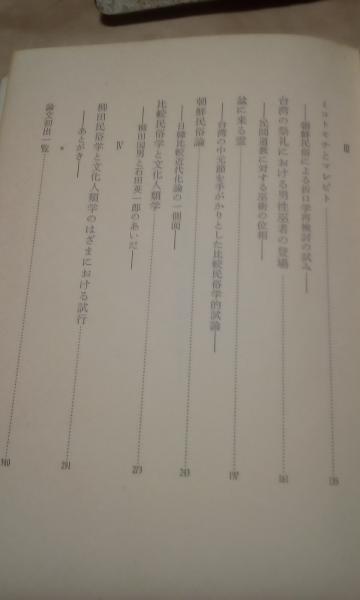 III
ミコトモチとマレビト
——朝鮮民俗による折口学再検討の試み—— 139
台湾の祭礼における男性巫者の登場
——民間道教に対する巫術の位相—— 161
盆に来る霊
——台湾の中元節を手がかりとした比較民俗学的試論—— 197
朝鮮民俗論
——日韓比較近代化論の一側面—— 243
比較民俗学と文化人類学
——柳田国男と石田英一郎のあいだ—— 273
IV
柳田民俗学と文化人類学のはざまにおける試行
——あとがき—— 291
論文初出一覧 340